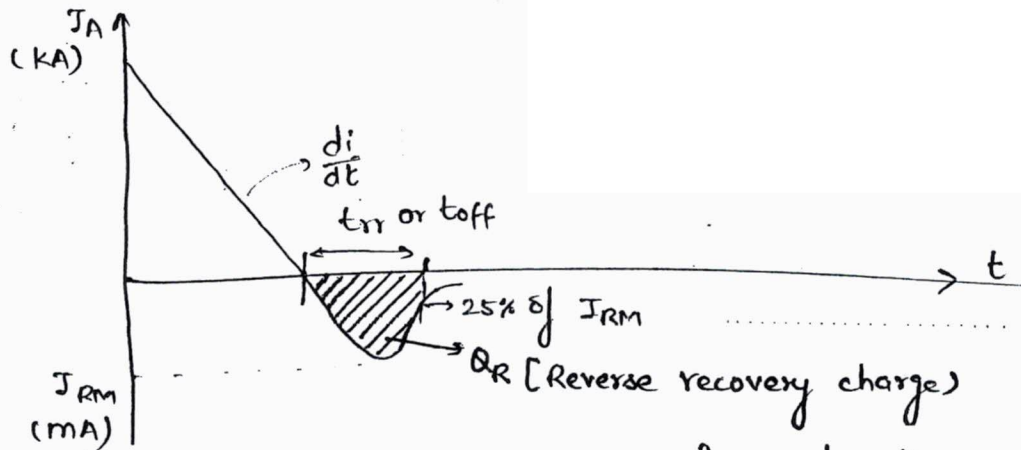 I_A
(kA)
di
dt
trr or toff
t
25% of I_RM
Q_R [Reverse recovery charge)
I_RM
(mA)